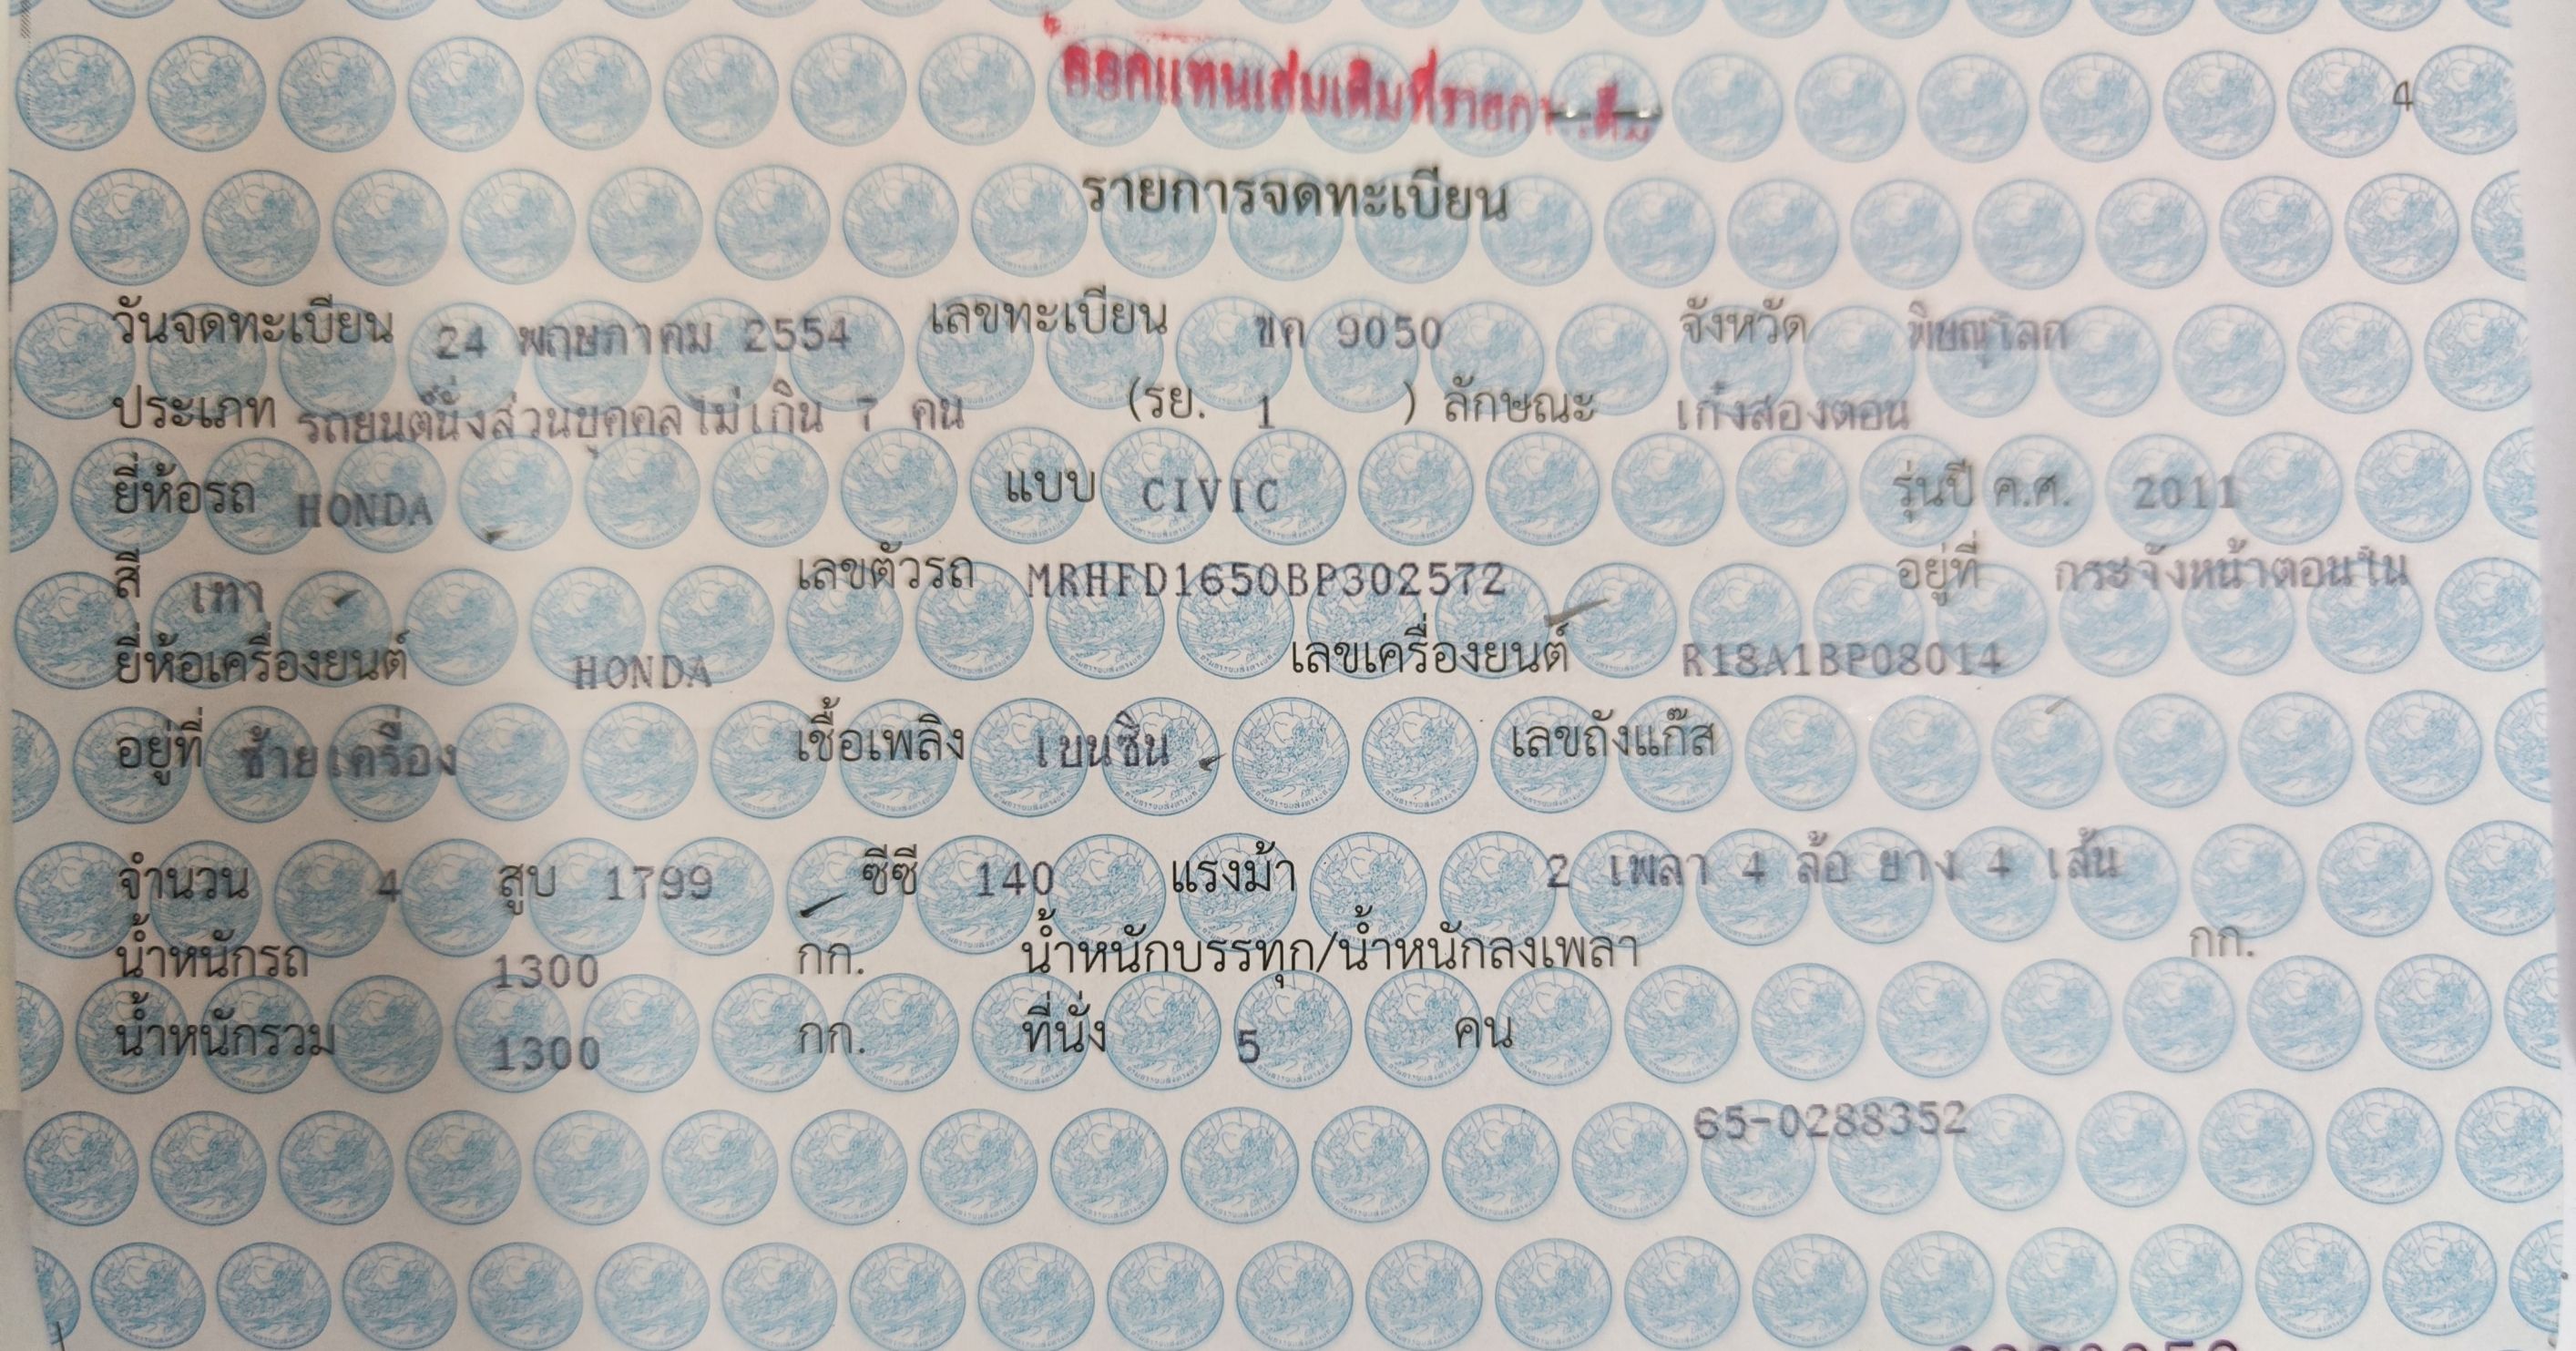 ออกแทนเล่มเดิมที่รายการเต็ม
4
รายการจดทะเบียน
วันจดทะเบียน 24 พฤษภาคม 2554 เลขทะเบียน ขค 9050 จังหวัด พิษณุโลก
ประเภท รถยนต์นั่งส่วนบุคคลไม่เกิน 7 คน (รย. 1 ) ลักษณะ เก๋งสองตอน
ยี่ห้อรถ HONDA แบบ CIVIC รุ่นปี ค.ศ. 2011
สี เทา เลขตัวรถ MRHFD1650BP302572 อยู่ที่ กระจังหน้าตอนใน
ยี่ห้อเครื่องยนต์ HONDA เลขเครื่องยนต์ R18A1BP08014
อยู่ที่ ซ้ายเครื่อง เชื้อเพลิง เบนซิน เลขถังแก๊ส
จำนวน 4 สูบ 1799 ซีซี 140 แรงม้า 2 เพลา 4 ล้อ ยาง 4 เส้น
น้ำหนักรถ 1300 กก. น้ำหนักบรรทุก/น้ำหนักลงเพลา กก.
น้ำหนักรวม 1300 กก. ที่นั่ง 5 คน
65-0288352